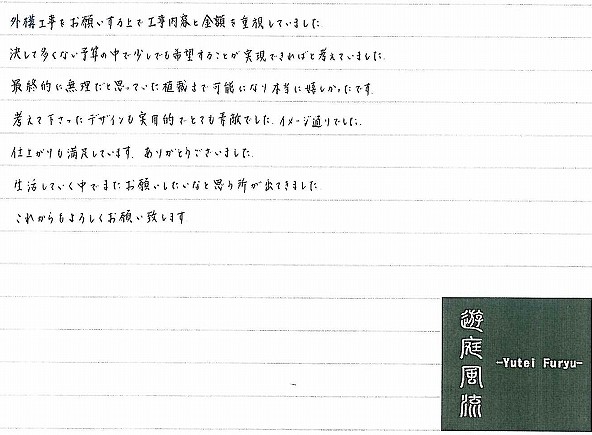 外構工事をお願いする上で工事内容と金額を重視していました.
決して多くない予算の中で少しでも希望することが実現できればと考えていました.
最終的に無理だと思っていた植栽まで可能になり本当に嬉しかったです.
考えて下さったデザインも実用的でとても素敵でした. イメージ通りでした.
仕上がりも満足しています. ありがとうございました.
生活していく中でまたお願いしたいなと思う所が出てきました.
これからもよろしくお願い致します
遊庭風流
-Yutei Furyu-